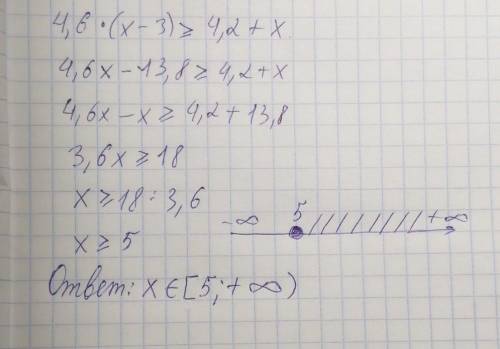 4,6·(x-3)≥4,2+x
4,6x-13,8≥4,2+x
4,6x-x≥4,2+13,8
3,6x≥18
x≥18:3,6
x≥5
-∞ 5 +∞
Ответ: x∈[5;+∞)